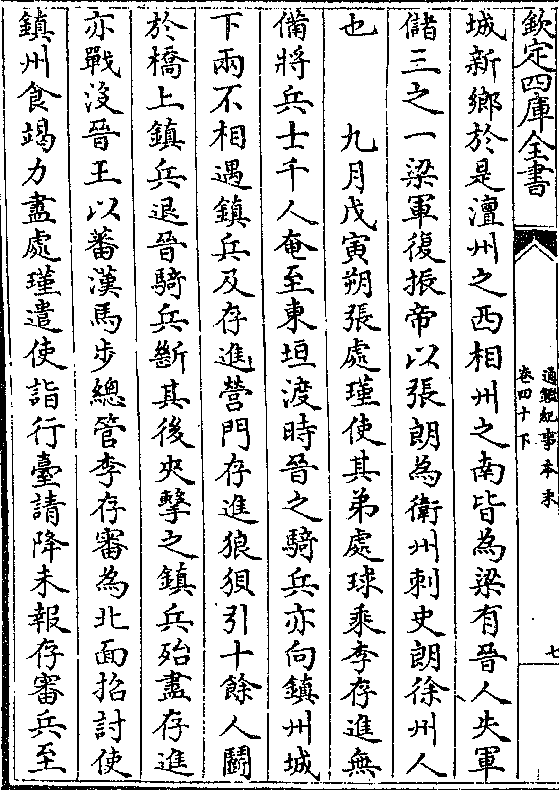 欽定四庫全書
通鑑紀事本末
卷四十下
七
城新鄉於是澶州之西相州之南皆為梁有晉人失軍
儲三之一梁軍復振帝以張朗為衛州刺史朗徐州人
也　九月戊寅朔張處瑾使其弟處球乘李存進無
備將兵士千人奄至東垣渡時晉之騎兵亦向鎮州城
下兩不相遇鎮兵及存進營門存進狼狽引十餘人鬭
於橋上鎮兵退晉騎兵斷其後夾擊之鎮兵殆盡存進
亦戰没晉王以蕃漢馬步總管李存審為北面招討使
鎮州食竭力盡處瑾遣使詣行臺請降未報存審兵至